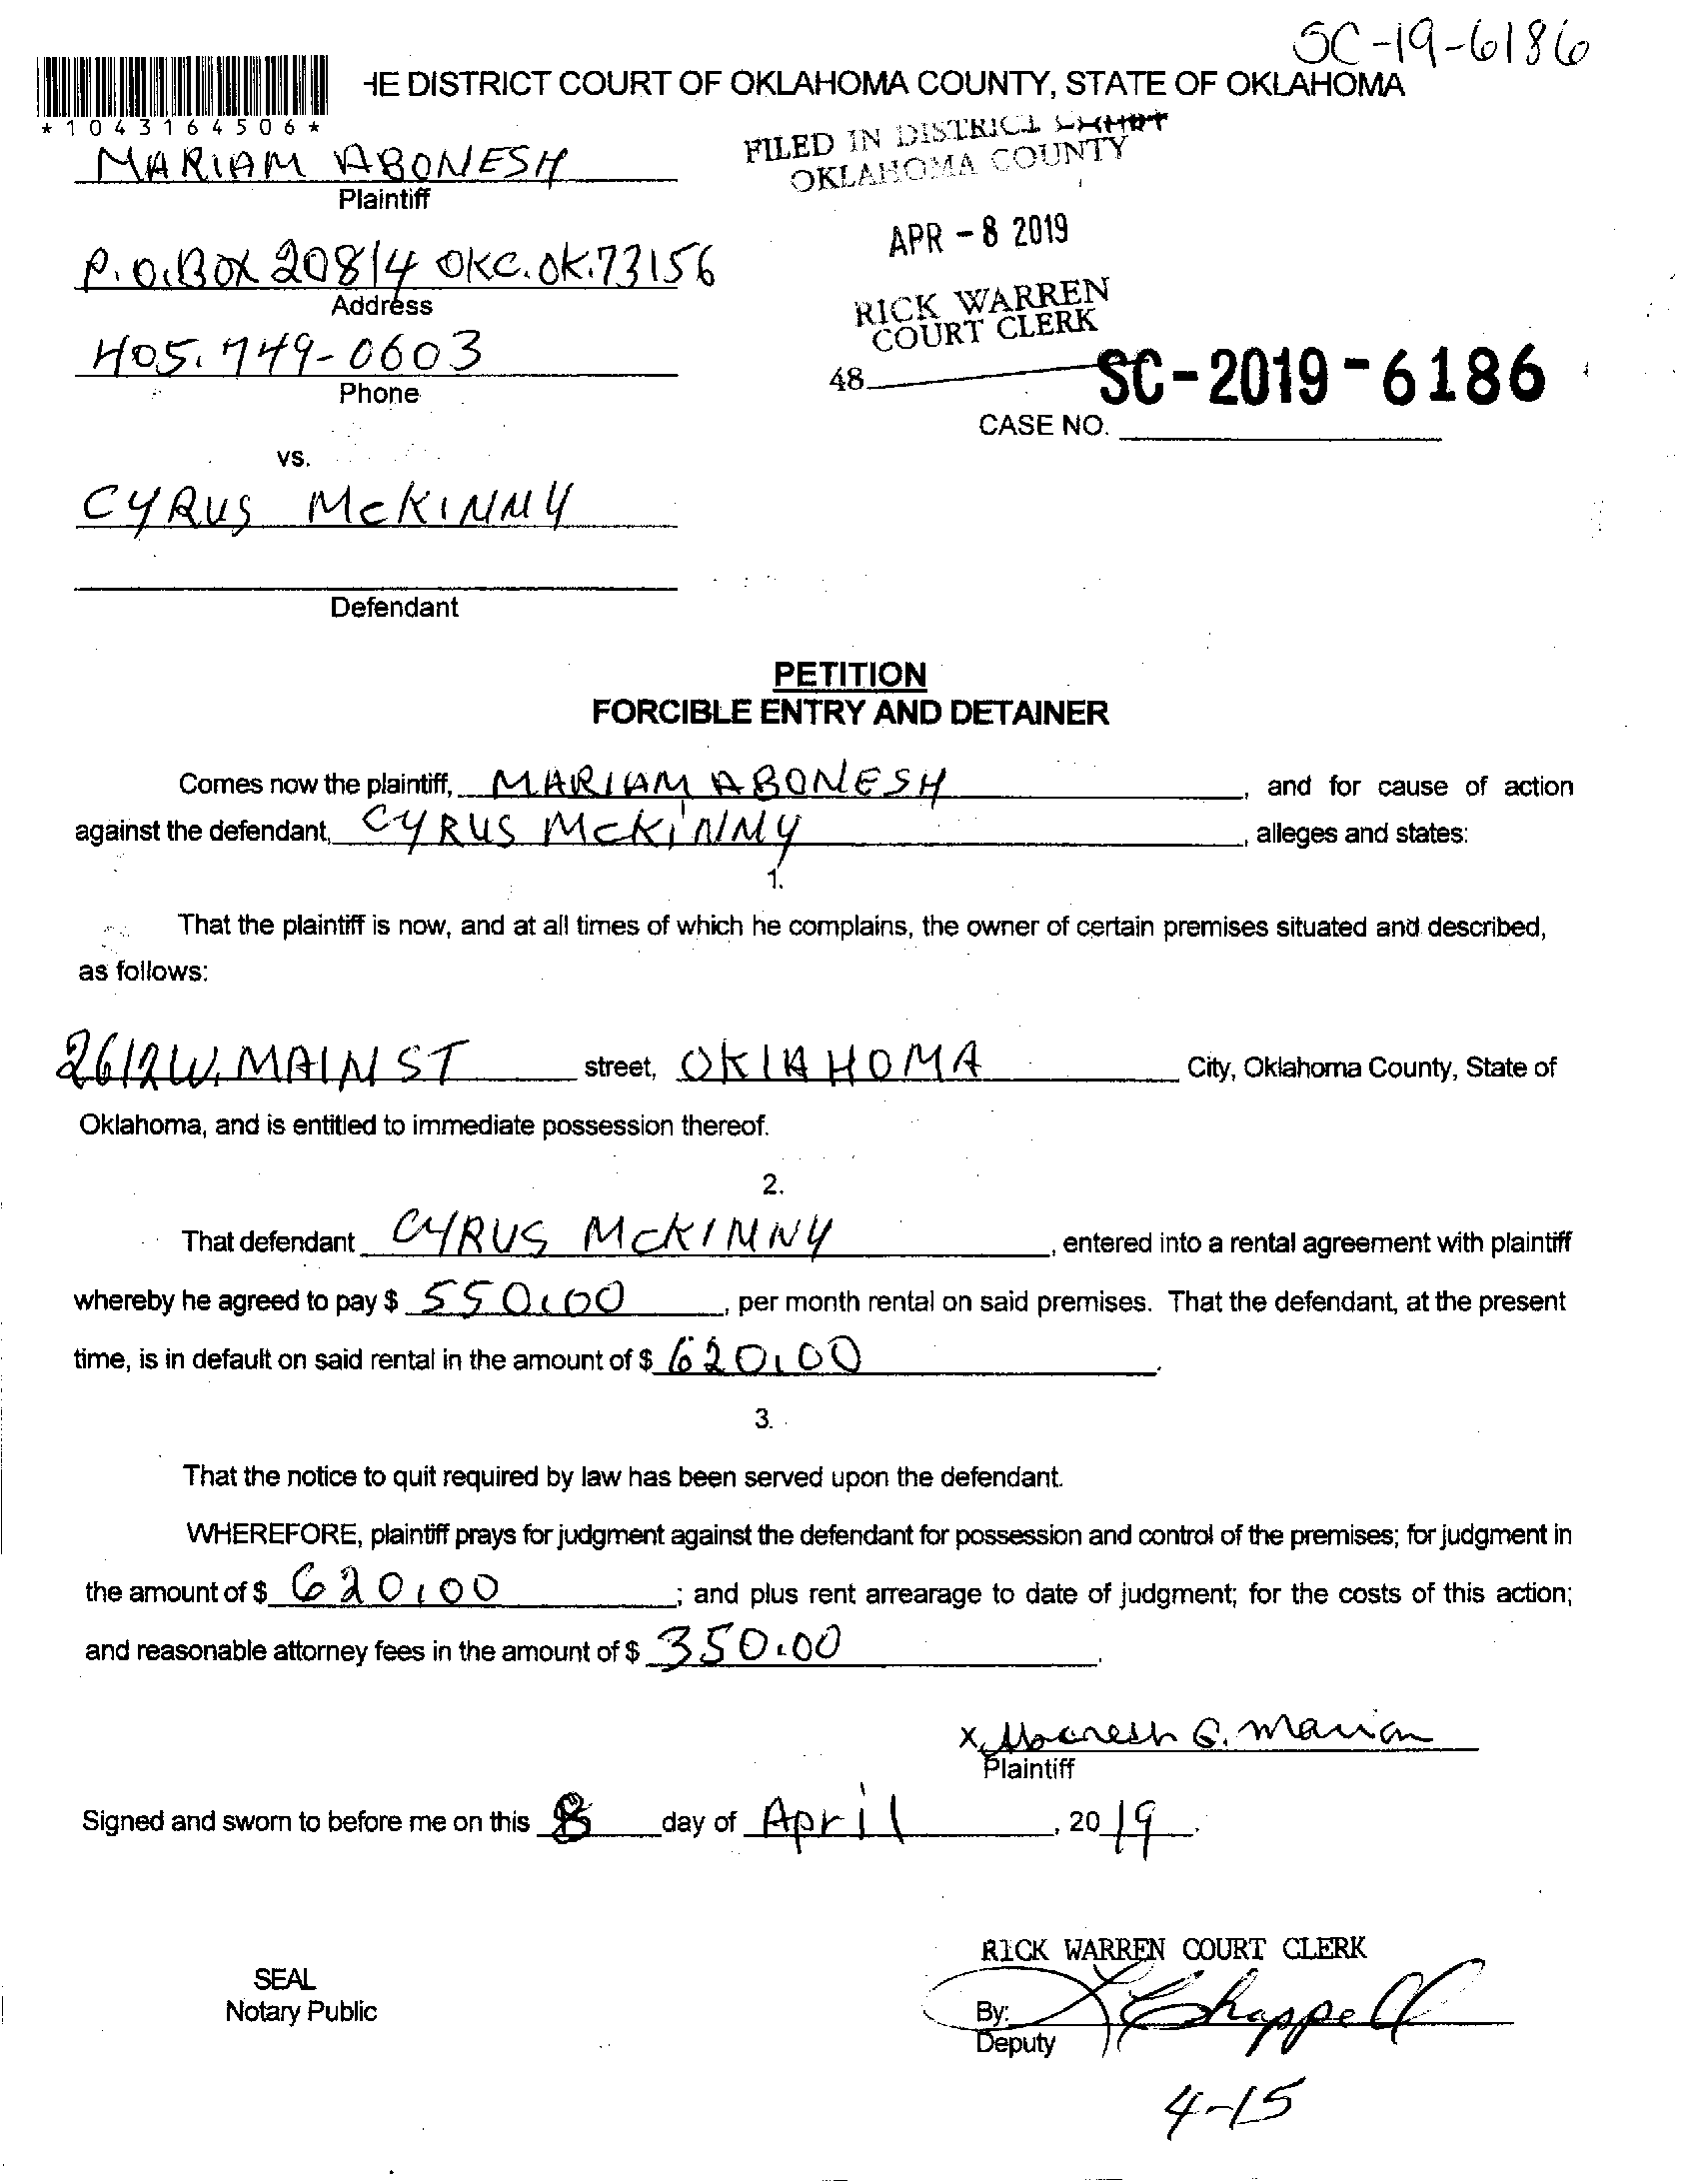 SC-19-6186
HE DISTRICT COURT OF OKLAHOMA COUNTY, STATE OF OKLAHOMA
*1043164506*
MARIAM ABONESH
Plaintiff
FILED IN DISTRICT COURT
OKLAHOMA COUNTY
P.O.BOX 20814 OKC.OK.73156
Address
APR - 8 2019
405.749-0603
Phone
RICK WARREN
COURT CLERK
48
SC-2019-6186
CASE NO.
vs.
CYRUS McKINNY
Defendant
PETITION
FORCIBLE ENTRY AND DETAINER
Comes now the plaintiff, MARIAM ABONESH, and for cause of action
against the defendant, CYRUS McKINNY, alleges and states:
1.
That the plaintiff is now, and at all times of which he complains, the owner of certain premises situated and described,
as follows:
2612 W. MAIN ST street, OKLAHOMA City, Oklahoma County, State of
Oklahoma, and is entitled to immediate possession thereof.
2.
That defendant CYRUS McKINNY, entered into a rental agreement with plaintiff
whereby he agreed to pay $ 550.00, per month rental on said premises. That the defendant, at the present
time, is in default on said rental in the amount of $ 620.00.
3.
That the notice to quit required by law has been served upon the defendant.
WHEREFORE, plaintiff prays for judgment against the defendant for possession and control of the premises; for judgment in
the amount of $ 620.00; and plus rent arrearage to date of judgment; for the costs of this action;
and reasonable attorney fees in the amount of $ 350.00.
X G. Mariam
Plaintiff
Signed and sworn to before me on this 8 day of April, 2019.
RICK WARREN COURT CLERK
SEAL
Notary Public
By: Chappell
Deputy
4-15